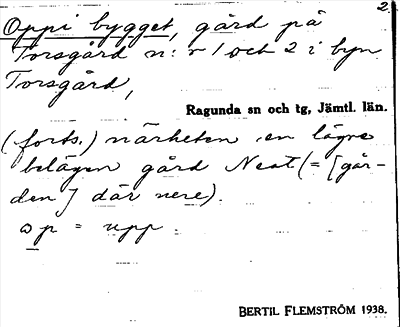 2.
Oppi bygget, gård på
Torsgård n:r 1 och 2 i byn
Torsgård,
Ragunda sn och tg, Jämtl. län.
(forts.) närheten en lägre
belägen gård Neat (= [går-
den] där nere).
op = upp.
BERTIL FLEMSTRÖM 1938.